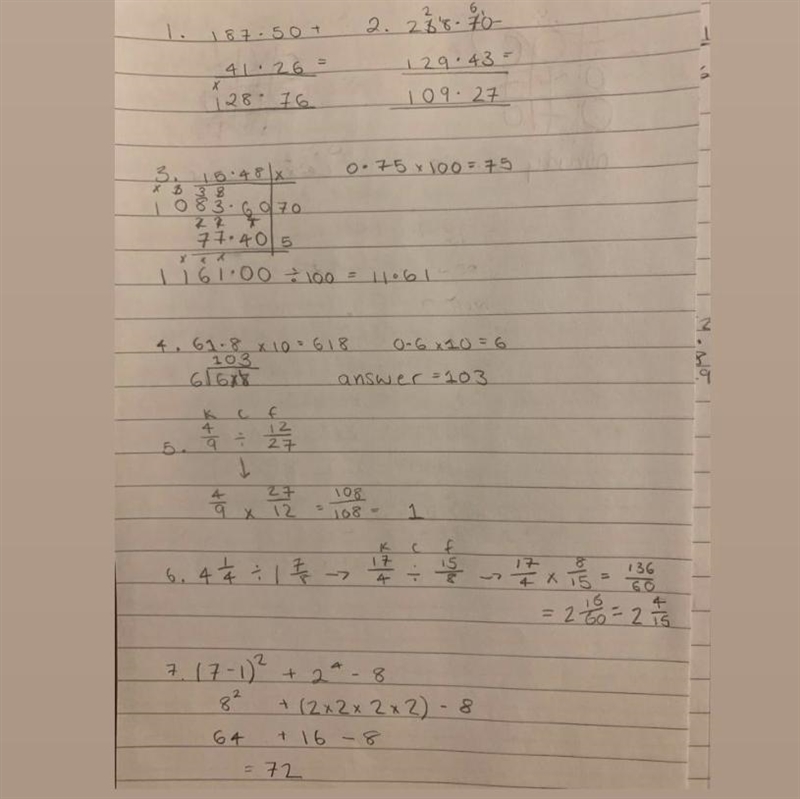 1. 187.50 +
41.26 =
128.76
2. 238.70 -
129.43 =
109.27
3. 15.48 x
0.75 x 100 = 75
1083.60 70
77.40 5
1161.00 ÷ 100 = 11.61
4. 61.8 x 10 = 618 0.6 x 10 = 6
103
6 618 answer = 103
K C f
5. 4/9 ÷ 12/27
↓
4/9 x 27/12 = 108/108 = 1
K C f
6. 4 1/4 ÷ 1 7/8 → 17/4 ÷ 15/8 → 17/4 x 8/15 = 136/60
= 2 16/60 = 2 4/15
7. (7-1)² + 2⁴ - 8
8² + (2x2x2x2) - 8
64 + 16 - 8
= 72